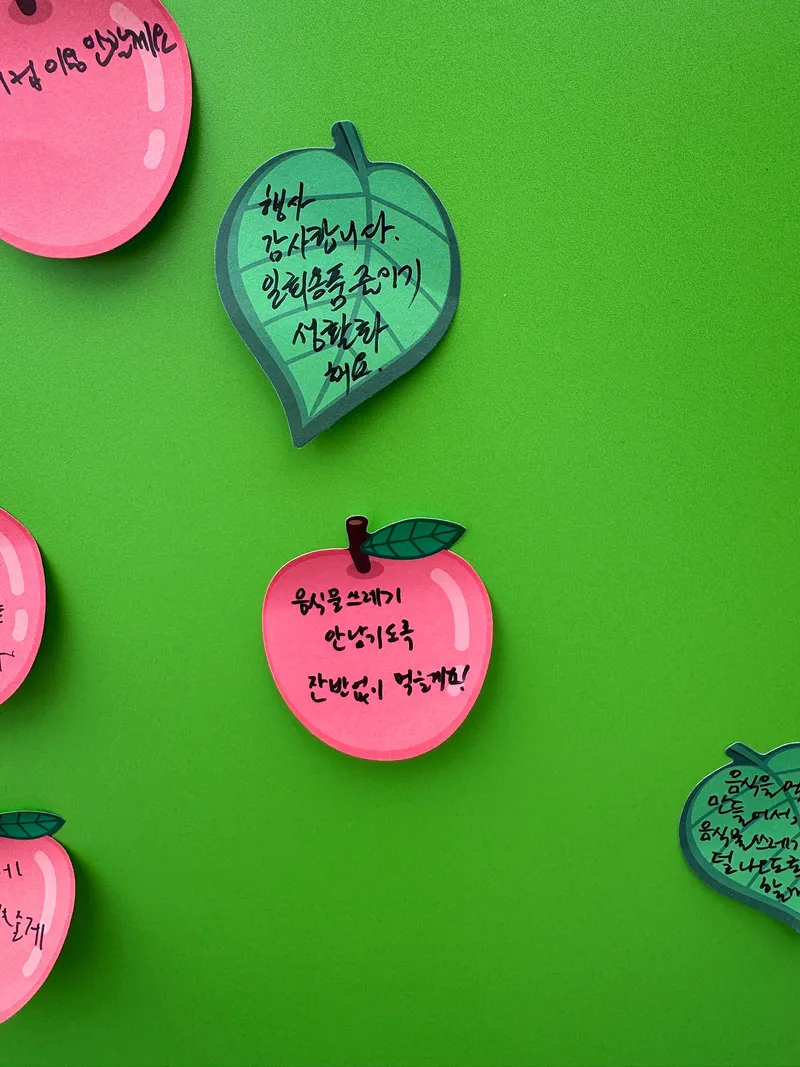 이용 안할께요
행사
감사합니다.
일회용품 줄이기
생활화
해요.
음식물 쓰레기
안남기도록
잔반없이 먹을게요!
음식을
만들어서,
음식물쓰레기
덜 나오도록